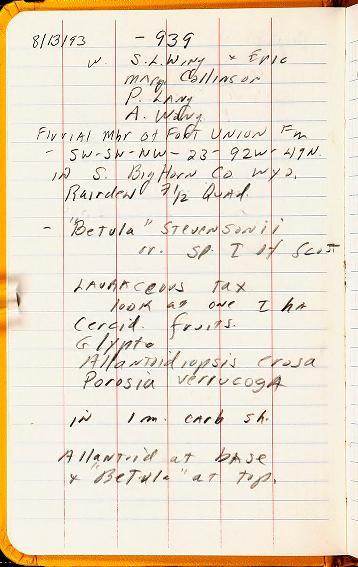 8/13/93 - 939
w. S.L. Wing & Eric
Margi Collinson
P. Lang
A. Wang
Fluvial Mbr of Fort Union Fm
- SW-SW-NW-23-92W-49N.
in S. BigHorn Co Wyo.
Rairden 7 1/2 Quad.
- "Betula" Stevensonii
or. sp. I of Scott
Lauraceous tax
look at one I ha
Cercid. fruits.
Glypto
Allantoidiopsis erosa
Porosia verrucosa
in 1 m. carb sh.
Allantoid at base
& "Betula" at top.